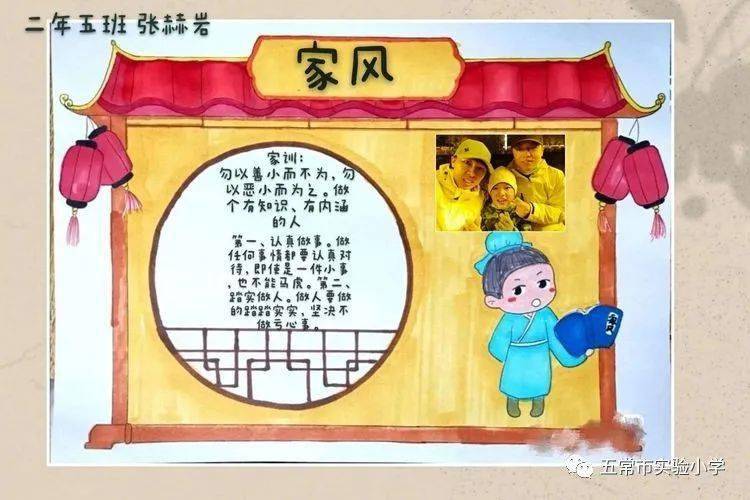 二年五班 张赫岩
家风
家训：
勿以善小而不为，勿
以恶小而为之。做
个有知识、有内涵
的人
第一、认真做事。做
任何事情都要认真对
待，即使是一件小事
，也不能马虎。第二、
踏实做人。做人要做
的踏踏实实，坚决不
做亏心事。
五常市实验小学